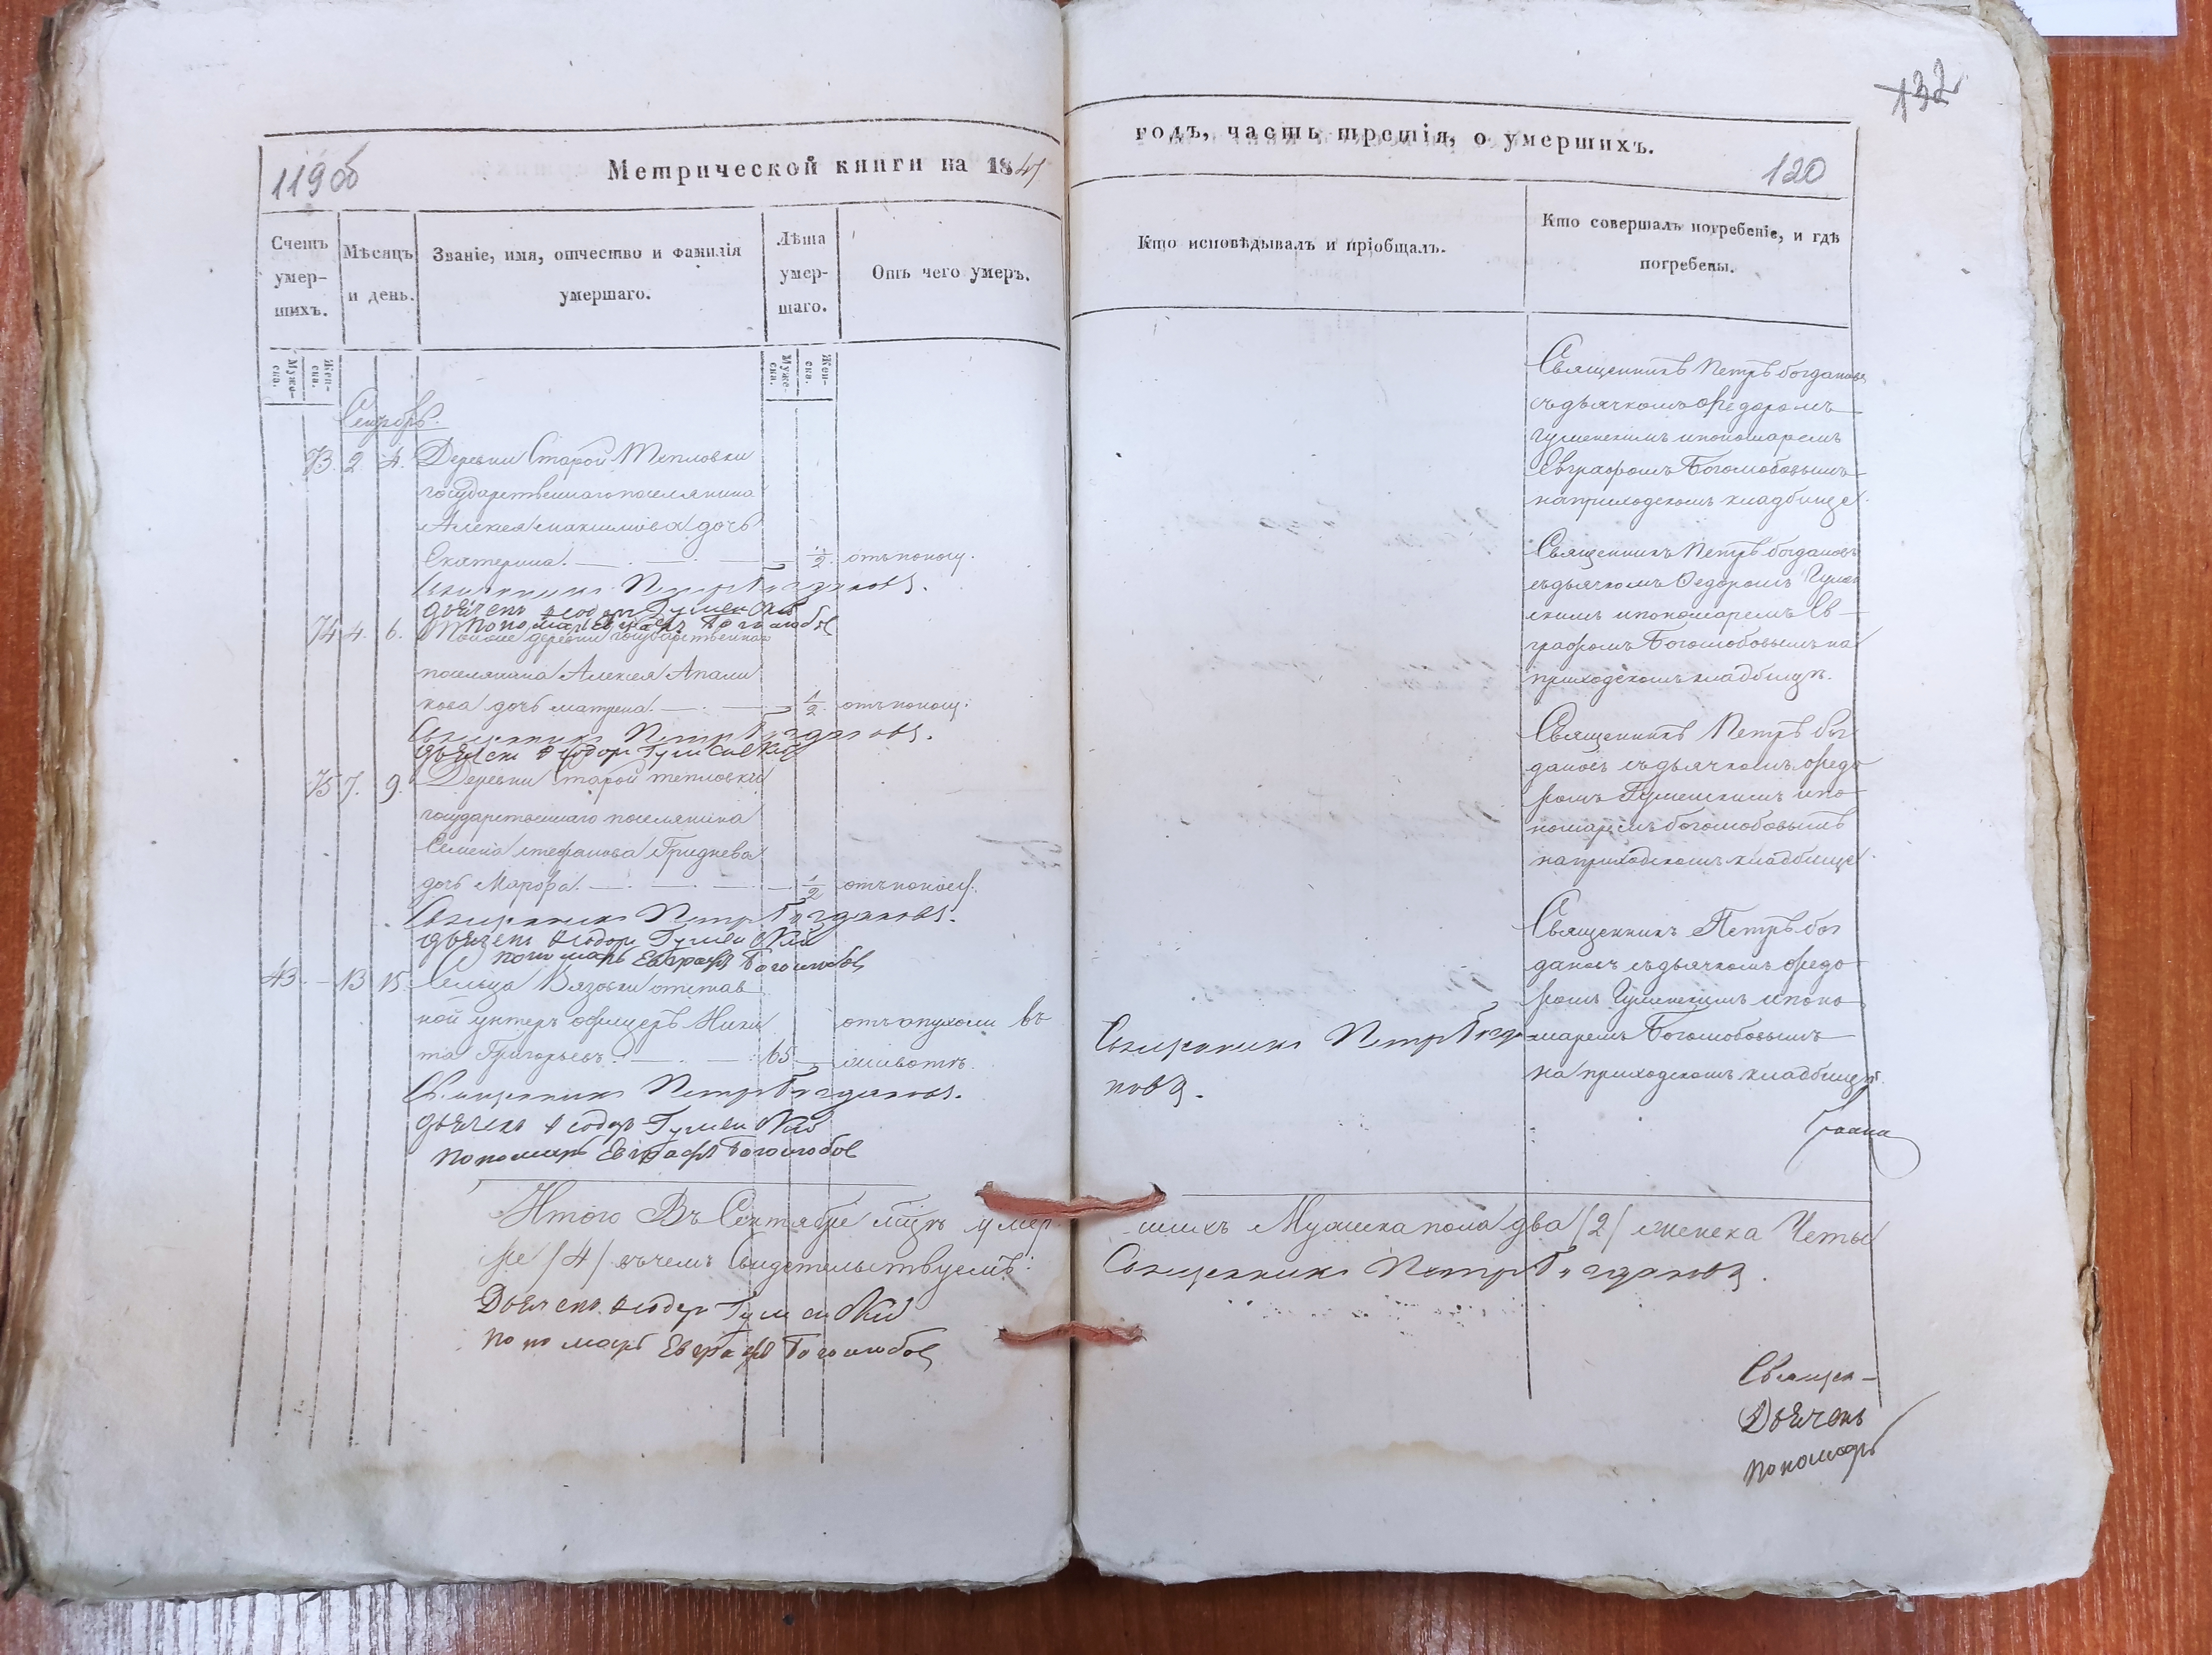 132
119об
Метрической книги на 1847
годъ, часть третія, о умершихъ.
120
Счетъ умер-шихъ.
Мѣсяцъ и день.
Званіе, имя, отчество и фамилія умершаго.
Лѣта умер-шаго.
Отъ чего умеръ.
Кто исповѣдывалъ и пріобщалъ.
Кто совершалъ погребеніе, и гдѣ погребены.
Муже-ска.
Жен-ска.
Муже-ска.
Жен-ска.
73. 2 4. Деревни Старой Тепловки
государственнаго поселянина
Алексея Максимова дочь
Екатерина. 1/2. отъ поносу.
Священникъ Петръ Богдановъ.
дьячекъ Ѳеодоръ Гуменскій
пономарь Евграфъ Боголюбов
Священникъ Петръ Богдановъ
съ дьячкомъ Федоромъ
Гуменскимъ и пономаремъ
Евграфомъ Боголюбовымъ
на приходскомъ кладбище.
74 4. 6. Тойже деревни государственнаго
поселянина Алексея
дочь Матрена. 1/2. отъ поносу.
Священникъ Петръ Богдановъ.
дьячекъ Ѳеодоръ Гуменскій
Священникъ Петръ Богдановъ
съ дьячкомъ Федоромъ Гумен
скимъ и пономаремъ Ев
графомъ Боголюбовымъ на
приходскомъ кладбищѣ.
75 7. 9. Деревни Старой Тепловки
государственнаго поселянина
Семена Стефанова Гриднева
дочь Марфа. 1/2 отъ поносу.
Священникъ Петръ Богдановъ.
дьячекъ Ѳеодоръ Гуменскій
пономарь Евграфъ Боголюбов
Священникъ Петръ Бог
дановъ съ дьячкомъ Федо
ромъ Гуменскимъ и по
номаремъ Боголюбовымъ
на приходскомъ кладбище.
43 13 15. Сельца Вязовки отстав
ной унтеръ офицеръ Ники отъ опухоли въ
та Григорьевъ. 65 животѣ.
Священникъ Петръ Богдановъ.
дьячекъ Ѳеодоръ Гуменскій
пономарь Евграфъ Боголюбов
Священникъ Петръ Богда
новъ.
Священникъ Петръ Бог
дановъ съ дьячкомъ Федо
ромъ Гуменскимъ и поно
маремъ Боголюбовымъ
на приходскомъ кладбищѣ.
Итого Въ Сентябре м͠цѣ умер
шихъ Мужска пола два /2/ женска Четы
ре /4/ въ чемъ Свидетельствуемъ:
Священникъ Петръ Богдановъ.
Дьячекъ Ѳеодоръ Гуменскій
пономарь Евграфъ Боголюбов
Священ-
Дьячекъ
пономарь